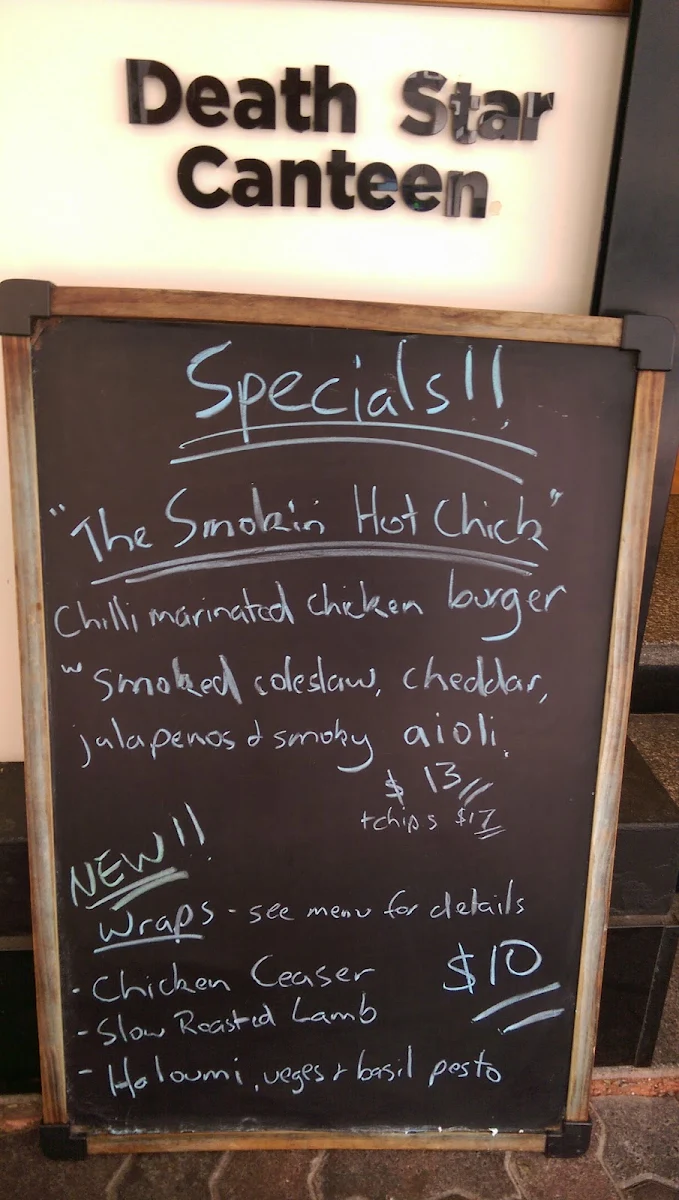 Death Star
Canteen
Specials!!
"The Smokin' Hot Chick"
Chilli marinated chicken burger
w smoked coleslaw, cheddar,
jalapenos & smoky aioli.
$13
+chips $17
NEW!!
Wraps - see menu for details
- Chicken Ceaser
$10
- Slow Roasted Lamb
- Haloumi, veges & basil pesto